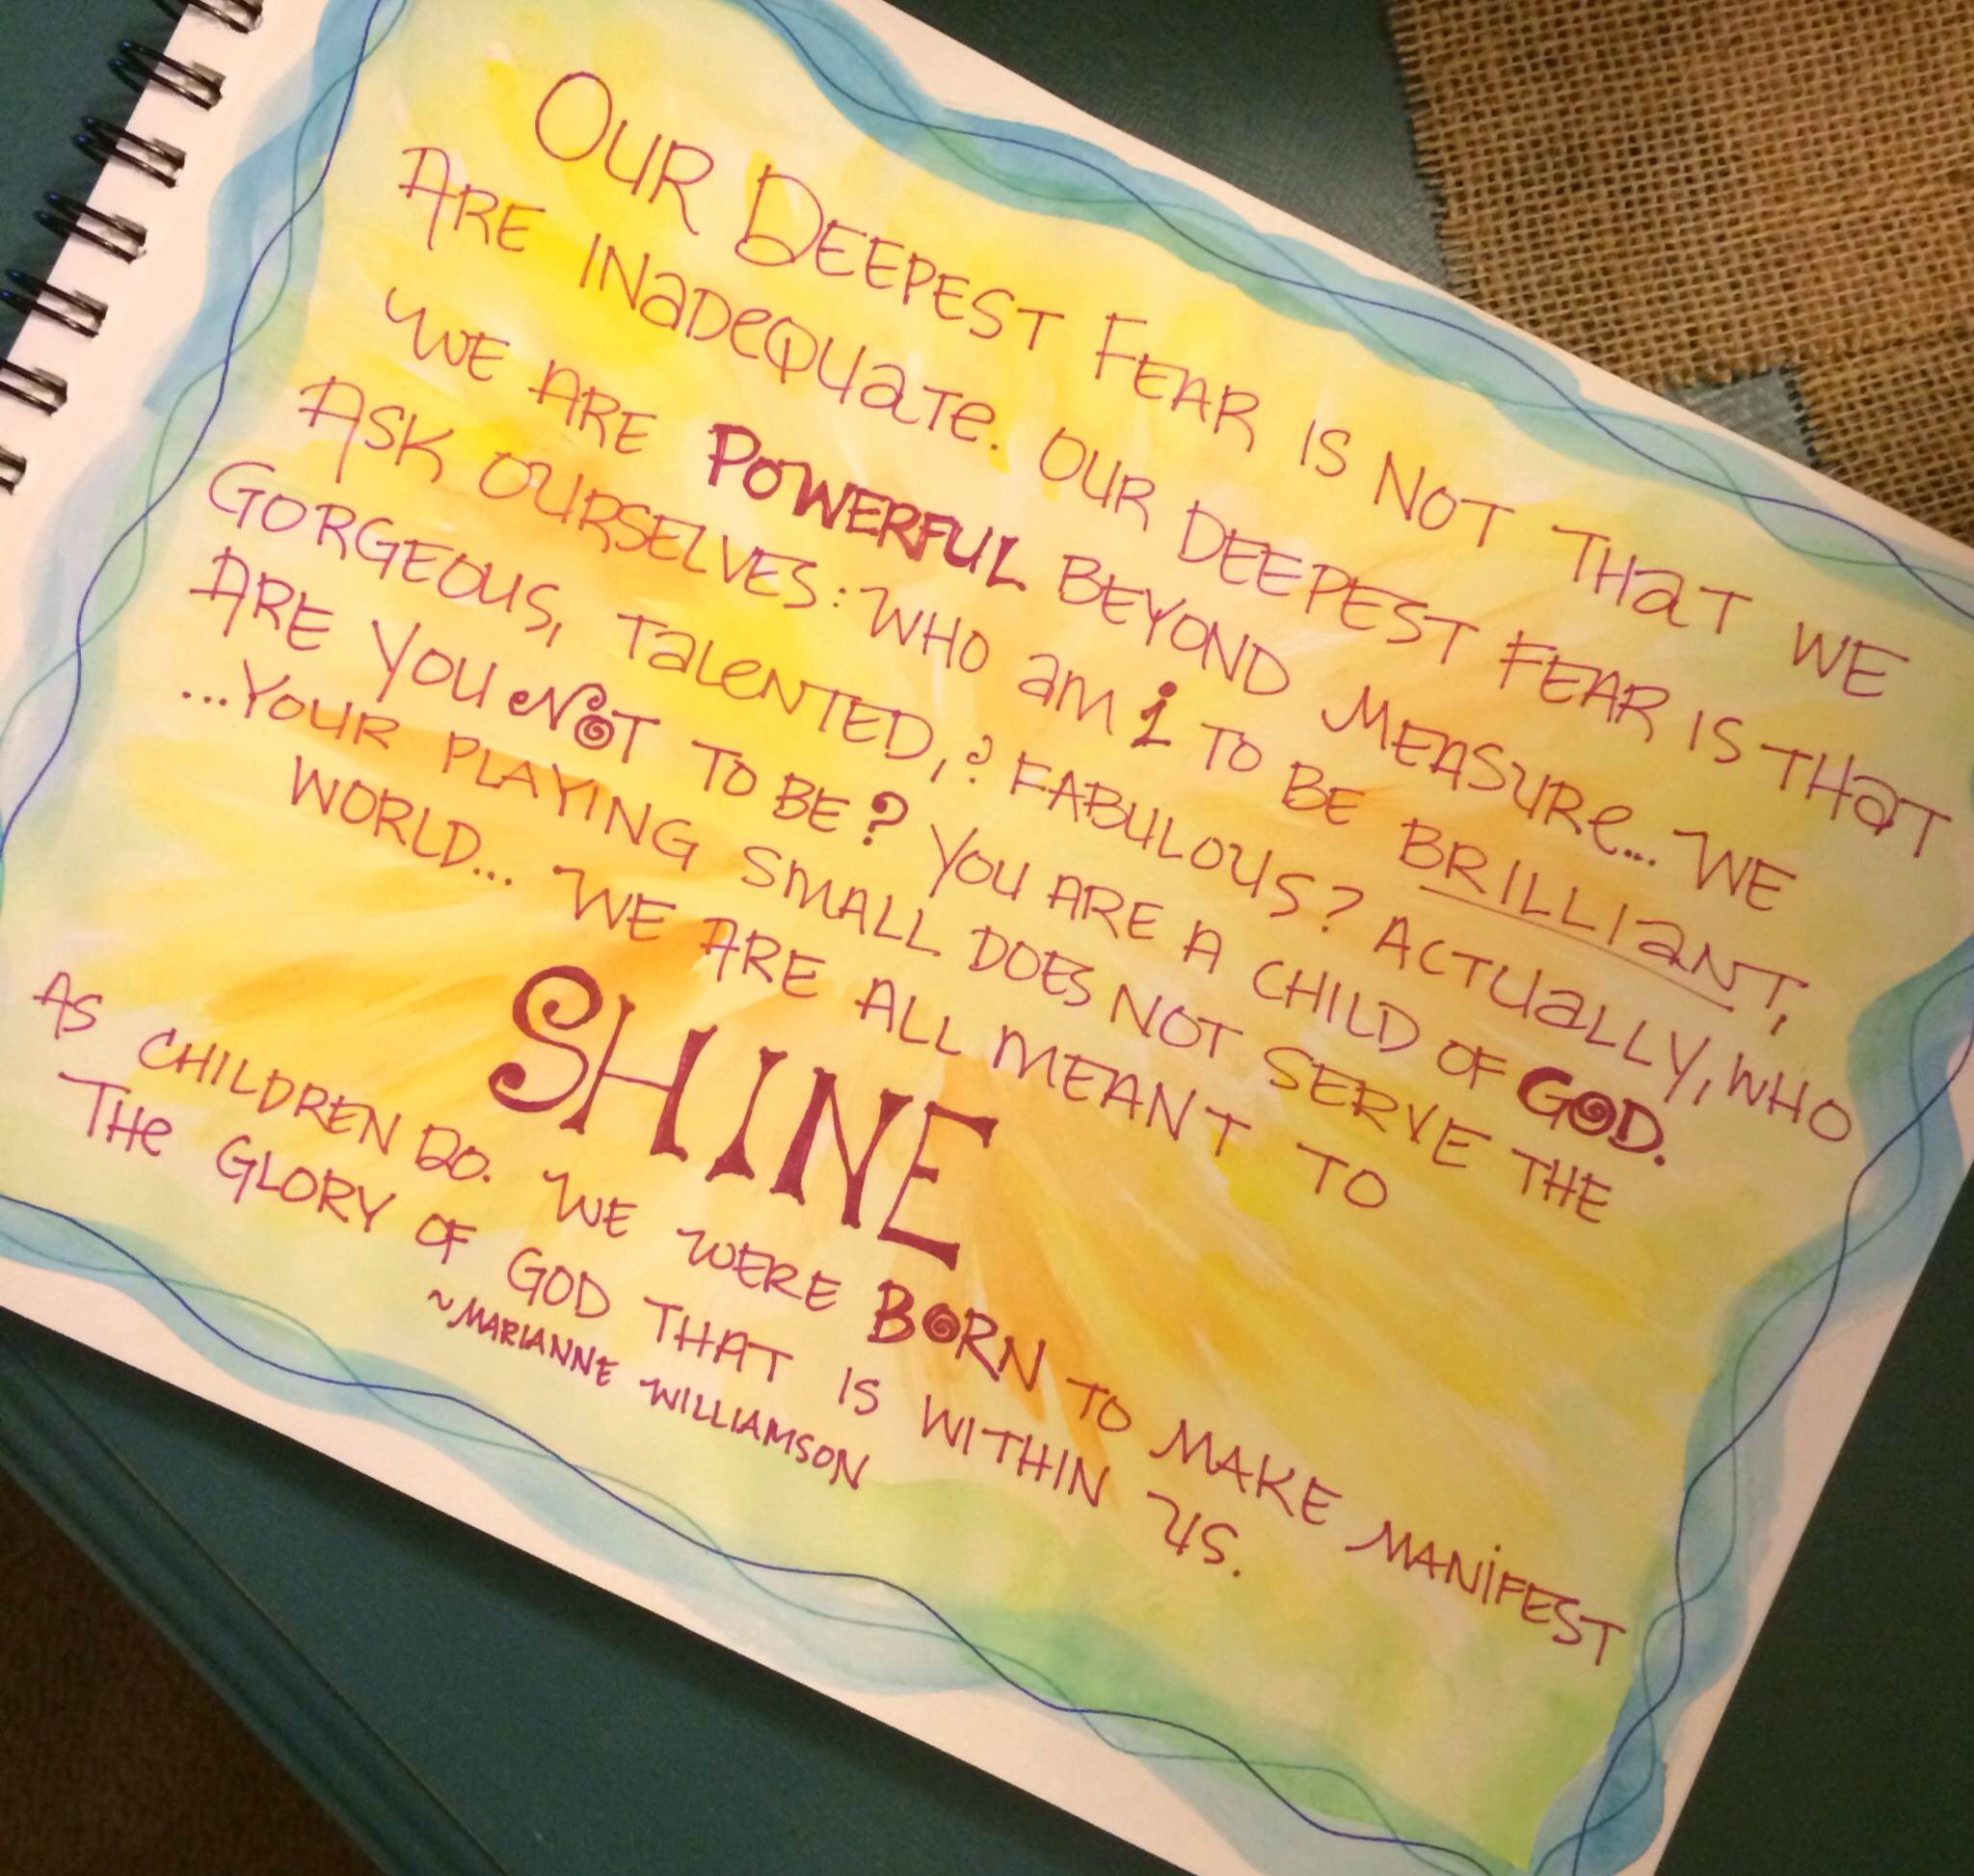 Our Deepest Fear is Not That We
Are inadequate. Our deepest fear is that
we are Powerful beyond measure... we
ask ourselves: who am i to be brilliant,
gorgeous, talented, & fabulous? Actually, who
are you not to be? You are a child of God.
...Your playing small does not serve the
world... we are all meant to
SHINE
as children do. We were Born to make manifest
The Glory of God that is within us.
~Marianne Williamson